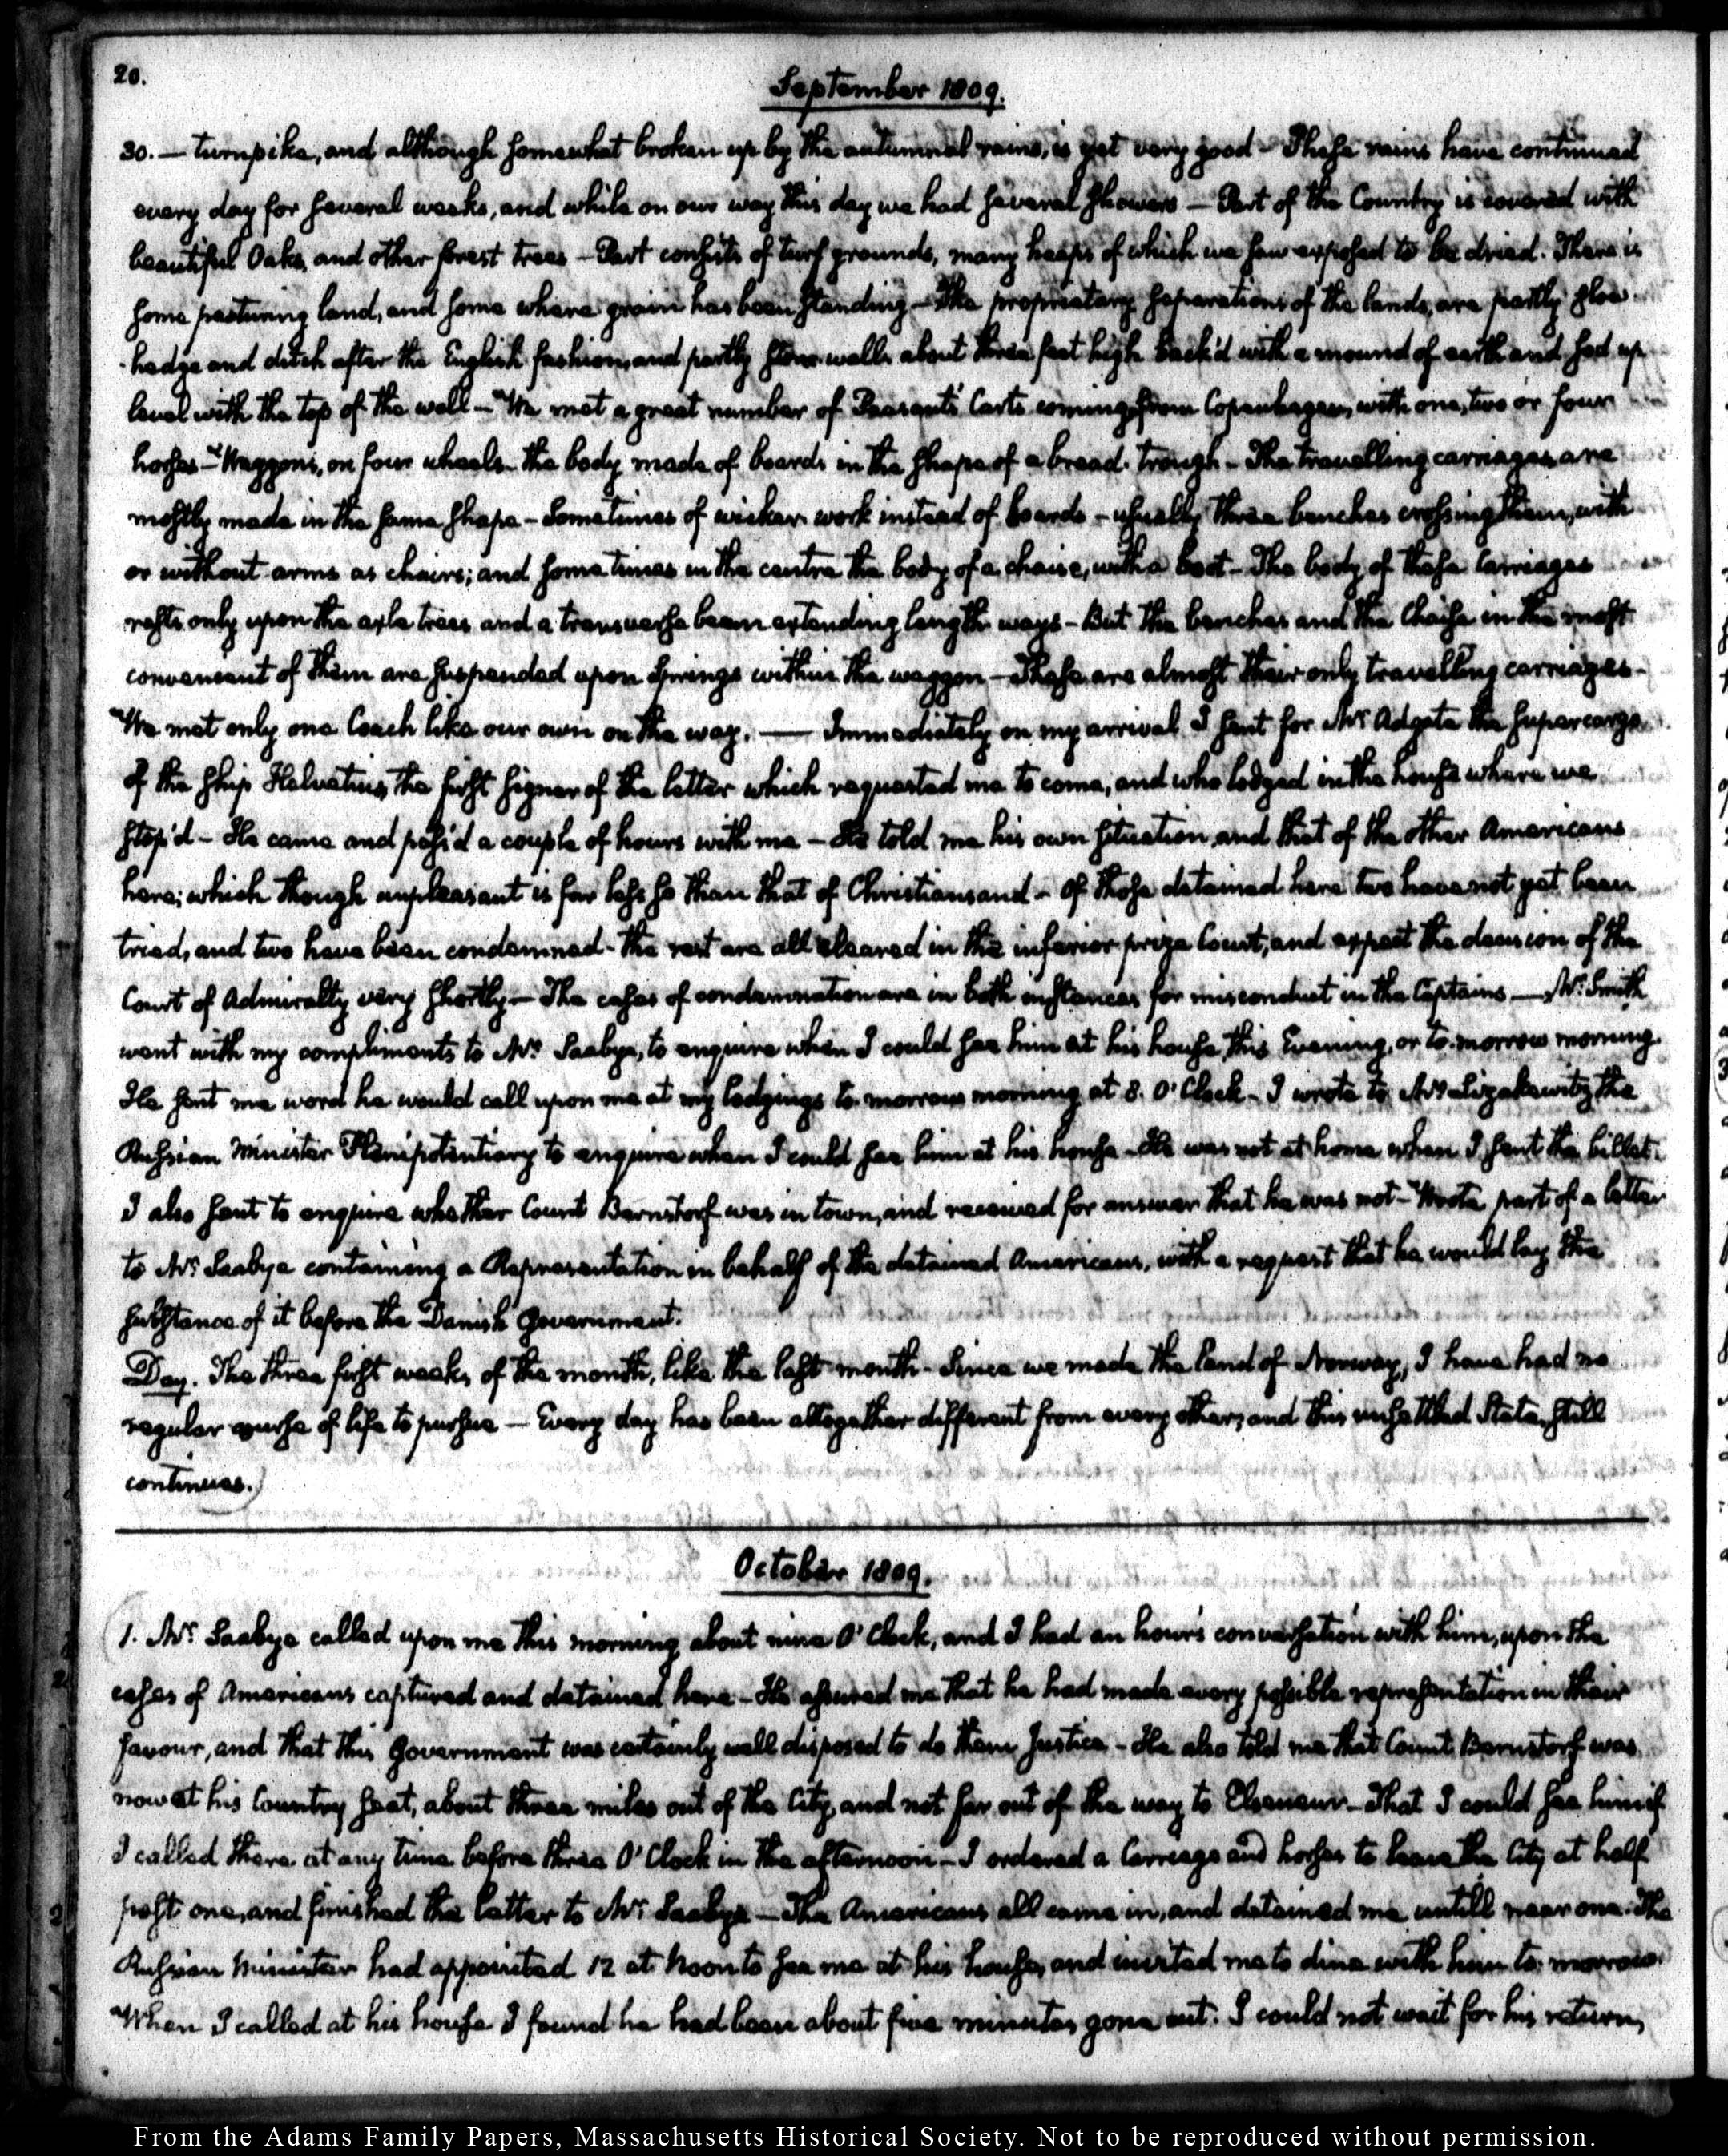 20.
September 1809.
30. — turnpike, and although somewhat broken up by the autumnal rains, is yet very good – These rains have continued
every day for several weeks, and while on our way this day we had several showers — Part of the Country is covered with
beautiful Oaks, and other forest trees – Part consists of turf grounds, many heaps of which we saw exposed to be dried. There is
some pasturing land, and some where grain has been standing – The proprietary separations of the lands, are partly
hedge and ditch after the English fashion, and partly stone walls about three feet high back'd with a mound of earth and sod up
level with the top of the wall – We met a great number of Peasants' Carts coming from Copenhagen, with one, two or four
horses – Waggons, on four wheels – the body made of boards in the shape of a bread-trough – The travelling carriages are
mostly made in the same shape – Sometimes of wicker work instead of boards – usually three benches crossing them, with
or without arms as chairs; and sometimes in the centre the body of a chaise, with a boot – The body of these Carriages
rests only upon the axle trees and a transverse beam extending length ways – But the benches and the Chaise in the most
convenient of them are suspended upon Springs within the waggon – These are almost their only travelling carriages –
We met only one Coach like our own on the way. — Immediately on my arrival I sent for Mr. Adgate the Supercargo
of the ship Helvetius, the first signer of the letter which requested me to come, and who lodged in the house where we
stop'd – He came and pass'd a couple of hours with me – He told me his own situation and that of the other Americans
here; which though unpleasant is far less so than that of Christiansand – Of those detained here two have not yet been
tried, and two have been condemned – the rest are all cleared in the inferior prize Court, and expect the decision of the
Court of Admiralty very shortly – The cases of condemnation are in both instances for misconduct in the Captains — Mr. Smith
went with my compliments to Mr. Saabye, to enquire when I could see him at his house, this Evening, or to-morrow morning.
He sent me word he would call upon me at my lodgings to-morrow morning at 8. O'Clock – I wrote to Mr. Lizakewitz the
Russian Minister Plenipotentiary to enquire when I could see him at his house – He was not at home when I sent the billet.
I also sent to enquire whether Count Bernstorf was in town, and received for answer that he was not – Wrote part of a letter
to Mr. Saabye containing a Representation in behalf of the detained Americans, with a request that he would lay the
substance of it before the Danish Government.
Day. The three first weeks of the month, like the last month – Since we made the land of Norway, I have had no
regular course of life to pursue — Every day has been altogether different from every other, and this unsettled State still
continues.
October 1809.
1. Mr. Saabye called upon me this morning about nine O'Clock, and I had an hour's conversation with him, upon the
cases of Americans captured and detained here – He assured me that he had made every possible representation in their
favour, and that this Government was certainly well disposed to do them Justice – He also told me that Count Bernstorf was
now at his Country seat, about three miles out of the City, and not far out of the way to Elseneur – That I could see him if
I called there at any time before three O'Clock in the afternoon – I ordered a Carriage and horses to leave the City at half
past one, and finished the letter to Mr. Saabye – The Americans all came in, and detained me untill near one. The
Russian Minister had appointed 12 at Noon to see me at his house, and invited me to dine with him to-morrow.
When I called at his house I found he had been about five minutes gone out. I could not wait for his return,
From the Adams Family Papers, Massachusetts Historical Society. Not to be reproduced without permission.